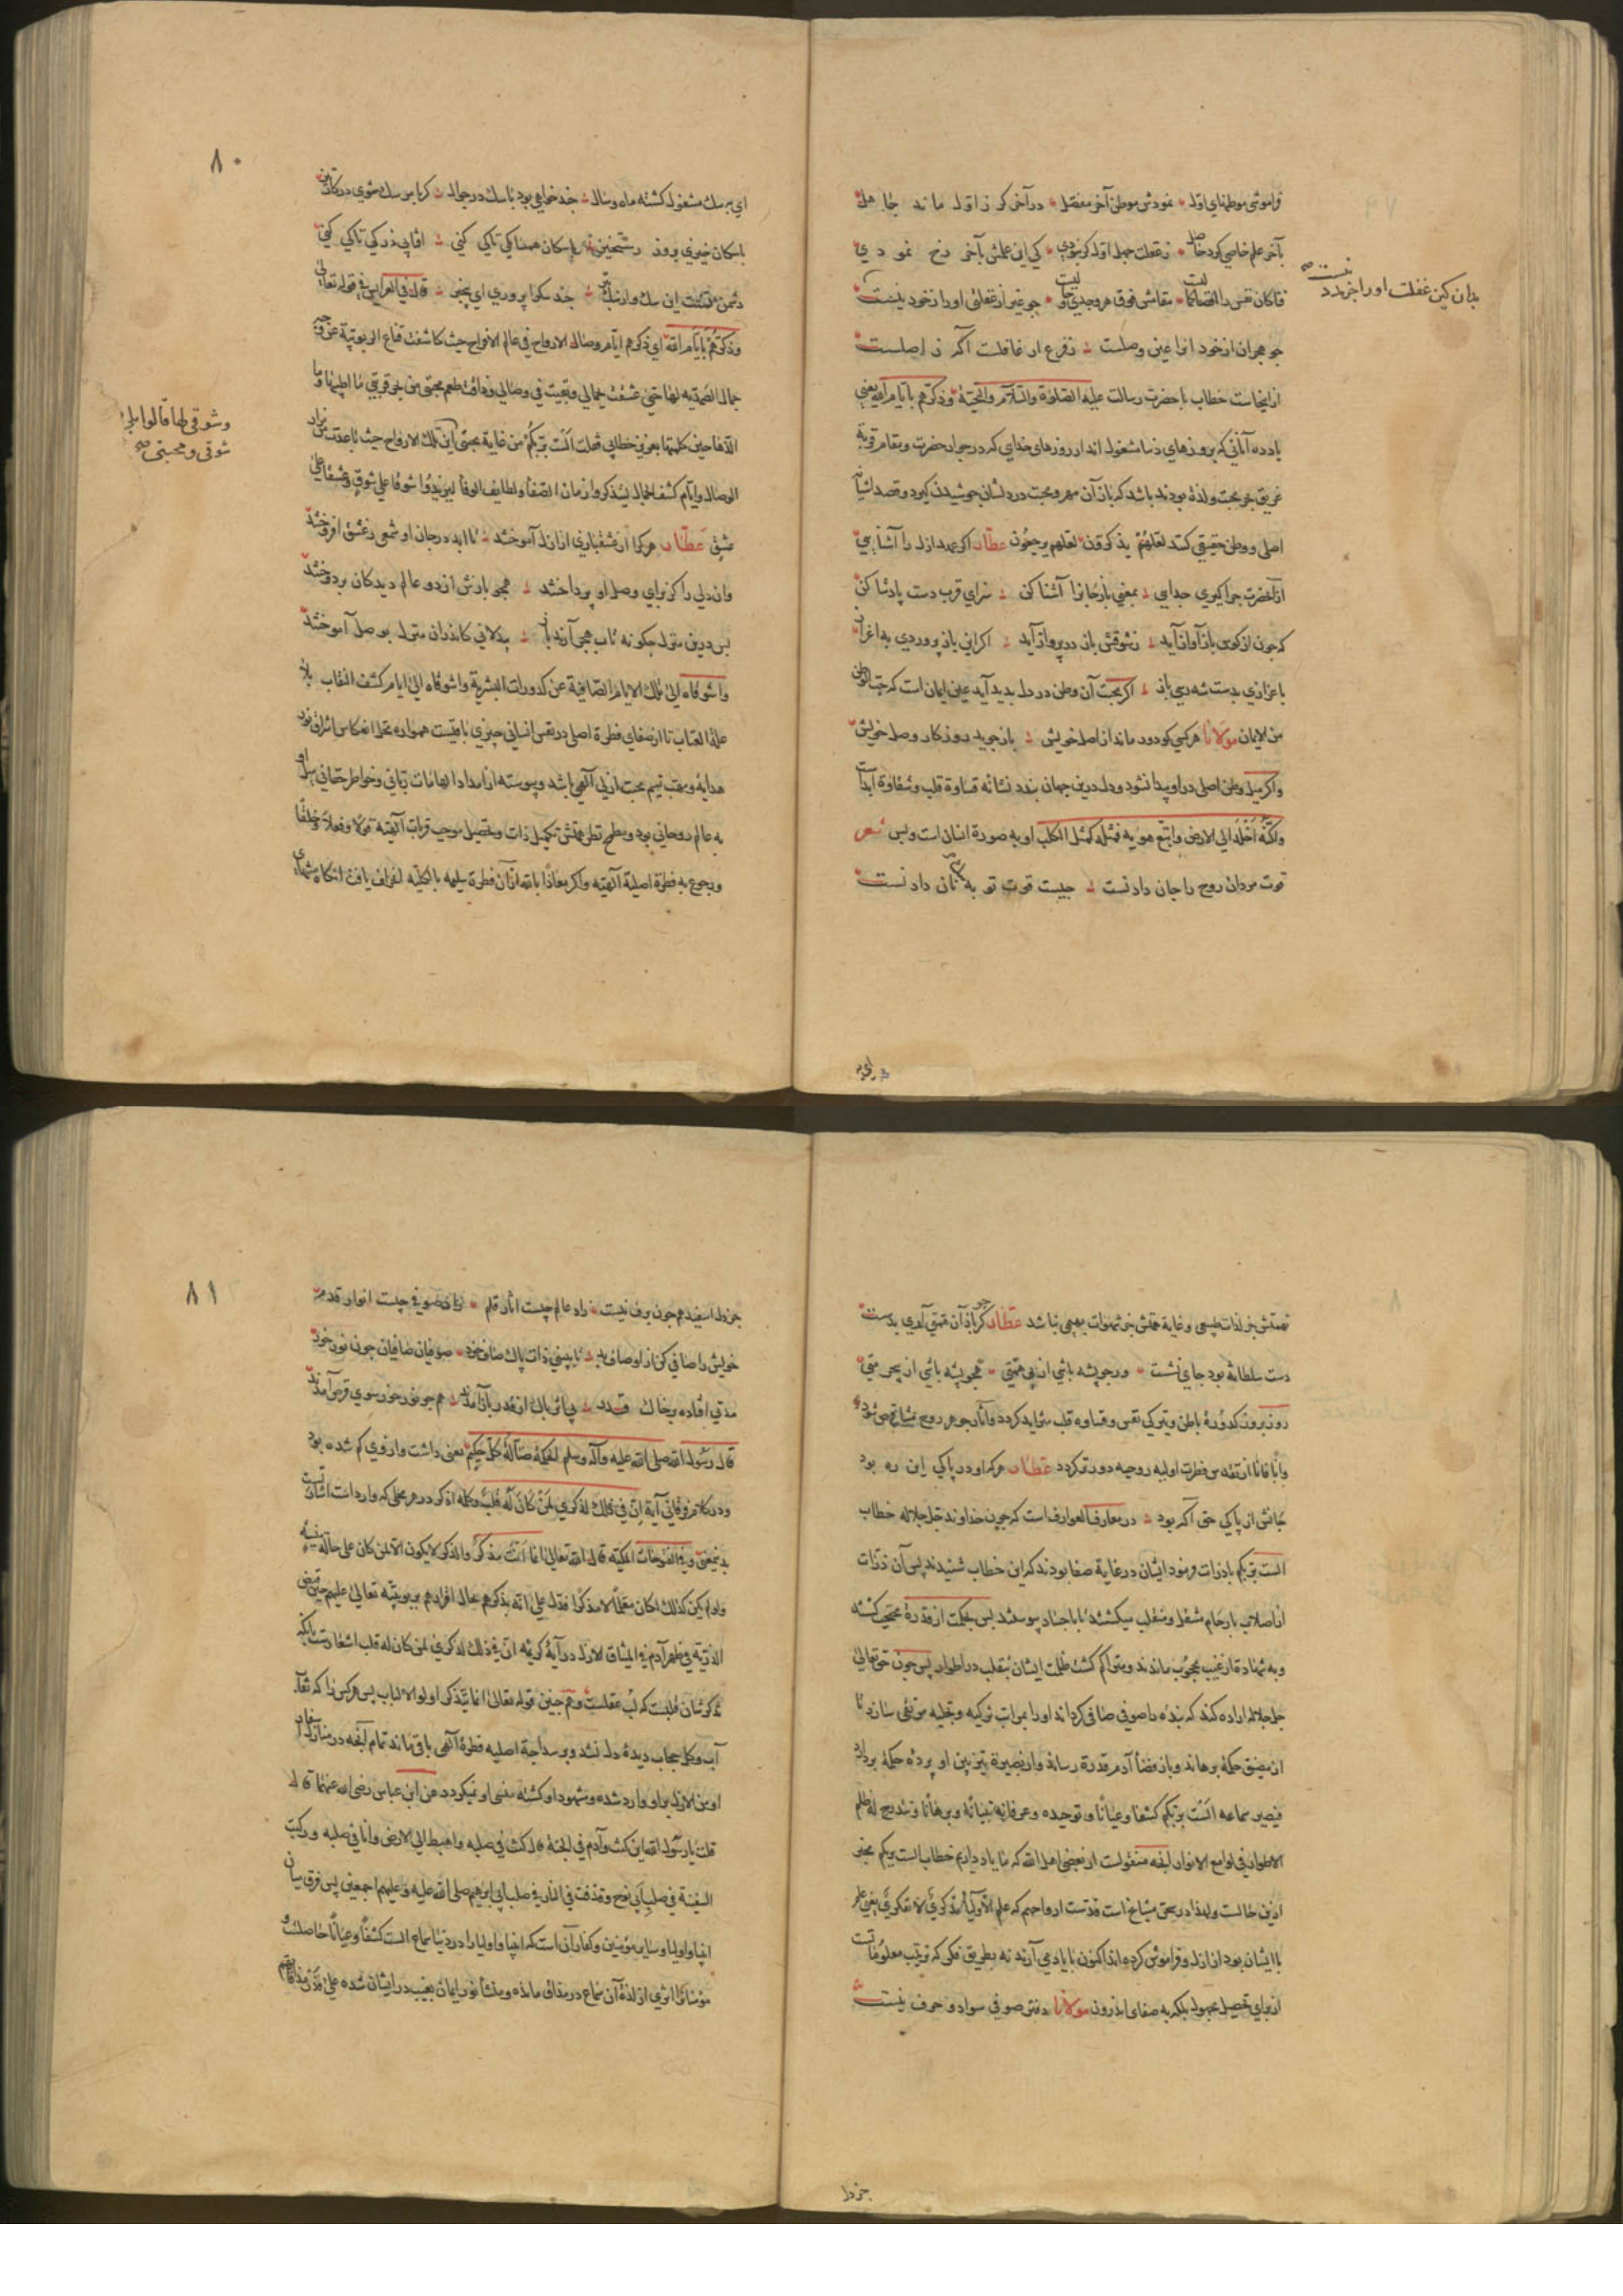 فراموشی موطنهای اول نمودش موطن آخر مفصل در آخر کر ز اول ماند جاهل
بآخر علم خاصی کرد حاصل ز غفلت جهل اول کر نبودی کی این علمش بآخر رخ نمودی
بقاش فوق هر وجدی جو غیر از غفلتی او را ز خود نیست
بدان کین غفلت او را جز مدد نیست صح
جو هجران از خود او را عین وصلست تفرع ار غافلست اگر ز اصلست
از اینجاست خطاب با حضرت رسالت علیه الصلوة والسلام والتحیة وذکرهم بایام الله یعنی
یاد ده آنانی که بروزهای دنیا مشغول اند از روزهای خدای که در جوار حضرت ومقام قربة
غریق بحر محبت ولذة بودند باشد که باز آن مهر ومحبت در دلشان جوشیدن کیرد وقصد آشیانه
اصلی ووطن حقیقی کنند لعلهم یذکرون لعلهم یرجعون عطار اکر عهد ازل را آشنایی
از آنحضرت جرا کیری جدایی بمعنی باز جانرا آشنا کن سزای قرب دست پادشا کن
که جون از کوس باز آواز آید ز شوقش باز در پرواز آید اکر این باز پروردی به اعزاز
با عزازی بدست شه رسی باز اکر محبت آن وطن در دل پدید آید عین ایمان است که حب الوطن
من الایمان مولانا هر کسی کو دور ماند از اصل خویش باز جوید روزکار وصل خویش
واکر میل وطن اصلی در او پیدا نشود ودل درین جهان بندد نشانه قساوة قلب وشقاوة ابد است
ولکنه اخلد الی الارض واتبع هویه فمثله کمثل الکلب او به صورة انسان است وبس شعر
قوت مردان روح را جان دادنست جیست قوت تو به سک نان دادنست
ای بر سک
٨٠
ای بر سک مشغول کشته ماه وسال جند خواهی بود با سک در جوال کر با بر سک شوی در کاتن
با سکان خیزی بروز رستخیز با سکان همنا کی تا کی کنی
دشمن تست این سک جند سک را پروری ای بیخبر قال فی العرایس فی قوله تعالی
وذکرهم بایام الله ای ذکرهم ایام وصال الارواح فی عالم الافراح حیث کاشفت قناع الربوبیة عن وجه
جمال الصمدیه لها حتی عشقت بجمالی وبقیت فی وصالی وذاقت طعم محبتی من بحر قربتی ما اطیبها وما
الذها حین کلمتها بعزیز خطابی فقلت الست بربکم من غایة محبتی این تلک الارواح حیث باعدت من مزار
وشوقی لها قالوا بلی
شوقی ومحبتی صح
الوصال وایام کشف الجمال لیتذکروا زمان الصفا ولطایف الوفا لیزیدوا شوقا علی شوق وعشقا علی
عشق عطار هر کرا در عشقبازی از ازل آموختند تا ابد در جان او شمعی ز عشق افروختند
وان دلی را کز برای وصل او پرداختند همجو بازش از دو عالم دیدکان بردوختند
بس درین منزل جکونه تاب هجر آرند باز بیدلانی کاندران منزل بوصل آموختند
واشوقاه الی تلک الایام الصافیة عن کدورات البشریة واشوقاه الی ایام کشف النقاب بلا
علة العتاب تا از صفای فطرة اصلی در نفس انسانی چیزی باقیست همواره محل انعکاس اشراق نور
هدایه ومهب نسیم محبت ازلی آلهی باشد وپیوسته از امداد الهامات ربانی وخواطر حقانی
به عالم روحانی بود ومطمح نظر همتش تکمیل ذات وتحصیل موجب قربات آلهیه قولا وفعلا وخلقا
ورجوع به فطرة اصلیة آلهیه واکر معاذا بالله ازان فطرة سلیمه بالکلیه انحراف یافت آنکاه منتهای
تعشقش جز لذات طبیعی وغایة همتش جز شهوات بهیمی نباشد عطار کر جو باز آن همتی آری بدست
دست سلطانت بود جای نشست ورجو پشه باشی از بی همتی همجو پشه باشی از بی حرمتی
روز بروز کدورة باطن وتیرکی نفس وقساوه قلب متزاید کردد وآثار جوهر روح متناقص شود
وآنا فآنا از تقدس فطرت اولیه روحیه دورتر کردد عطار هر که او در پاکی این ره بود
جانش از پاکی حق آکه بود در معارف العوارف است که جون خداوند جل جلاله خطاب
الست بربکم با ذرات فرمود ایشان در غایة صفا بودند که این خطاب شنیدند پس آن ذرات
از اصلاب بارحام منتقل ومنقلب میکشتند تا باجساد پیوستند پس بحکمت از قدرة محتجب کشته
وبه شهادة از غیب محجوب ماندند ومتراکم کشت ظلمت ایشان بتقلب در اطوار پس جون حق تعالی
جل جلاله اراده کند که بنده را صوفی صافی کرداند او را بمراتب تزکیه وتحلیه مرتقی سازد تا
از مضیق حکمة برهاند وبا فضاء قدرة رساند واز بصیرة تیزبین او پرده حکمة بردارد
فیصیر سماعه الست بربکم کشفا وعیانا وتوحیده وعرفانه تبیانا وبرهانا وتندرج له ظلم
الاطوار فی لوامع الانوار آنفه منقولست از بعضی اهل الله که ما یاد داریم خطاب الست بربکم مخبر
ازین حالست ولهذا در بحث مشایخ است قدست ارواحهم که علم الاولیاء تذکری لا تفکری یعنی علم
با ایشان بود از ازل وفراموش کرده اند اکنون با یاد می آرند نه بطریق فکر که ترتیب معلوماتست
از برای تحصیل مجهول بلکه به صفای اندرون مولانا دفتر صوفی سواد وحرف نیست
جز دل
٨١
جز دل اسفید همجون برف نیست زاد عالم چیست آثار قلم زاد صوفی چیست انوار قدم
خویش را صافی کن از اوصاف بد تا ببینی ذات پاک صاف خود صوفیان صافیان جون نور خور
مدتی افتاده بر خاک قذر بی اثر پاک از قذر باز آمدند همجو نور خور سوی قرص آمدند
قال رسول الله صلی الله علیه وآله وسلم الحکمة ضالة کل حکیم یعنی داشت واز وی کم شده بود
ودر کلام فرقانی آیة ان فی ذلک لذکری لمن کان له قلب وکلمه اذکر در هر محلی که وارد است اشارتست
بدینمعنی وفی الفتوحات المکیه قال الله تعالی انما انت مذکر والذکر لا یکون الا لمن کان علی حالة منسیه
ولو لم یکن کذلک لکان معلما لا مذکرا فدل علی انه یذکرهم بحال اقرارهم بربوبیته تعالی علیهم حین قبض
الذریه من ظهر آدم فی المیثاق الاول در آیة کریمه ان فی ذلک لذکری لمن کان له قلب اشعارتست بآنکه
تذکر شان قلبست که لب عقلست وهم جنین قوله تعالی انما یتذکر اولوا الالباب پس هر کس را که نقاء
آب وکل حجاب دیده دل نشد وبر سذاجة اصلیه فطرة آلهی باقی ماند تمام آنجه در منازل اسفار
او من الازل بر او وارد شده ومشهود او کشته منسی او نمیکردد عن ابن عباس رضی الله عنهما قال
قلت یا رسول الله این کنت وآدم فی الجنة قال کنت فی صلبه واهبط الی الارض وانا فی صلبه ورکبت
السفینة فی صلب ابی نوح وقذفت فی النار فی صلب ابی ابراهیم صلی الله علیه وعلیهم اجمعین پس فرق میان
انبیا واولیا وسایر مؤمنین وکفار آن است که انبیا واولیا را در دنیا سماع الست کشفا وعیانا حاصلست و
مؤمنانرا اثری از لذة آن سماع در مذاق مانده ومنشأ نور ایمان بغیب در ایشان شده علی قدر مذاقهم